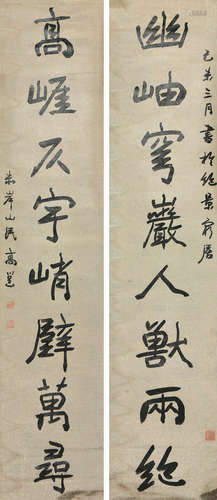 己未三月書於絕景窮居
幽岫穹巖人獸兩絕
高崕仄宇峭壁萬尋
赤岸山民高邕